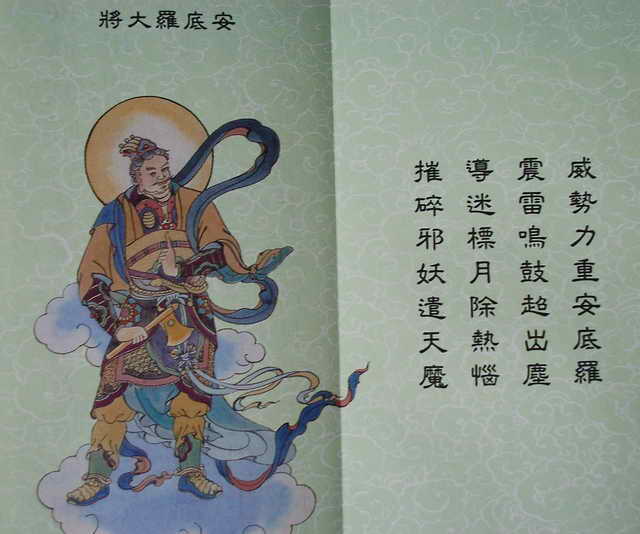 安底羅大將
威勢力重安底羅
震雷鳴鼓超出塵
導迷標月除熱惱
摧碎邪妖遣天魔